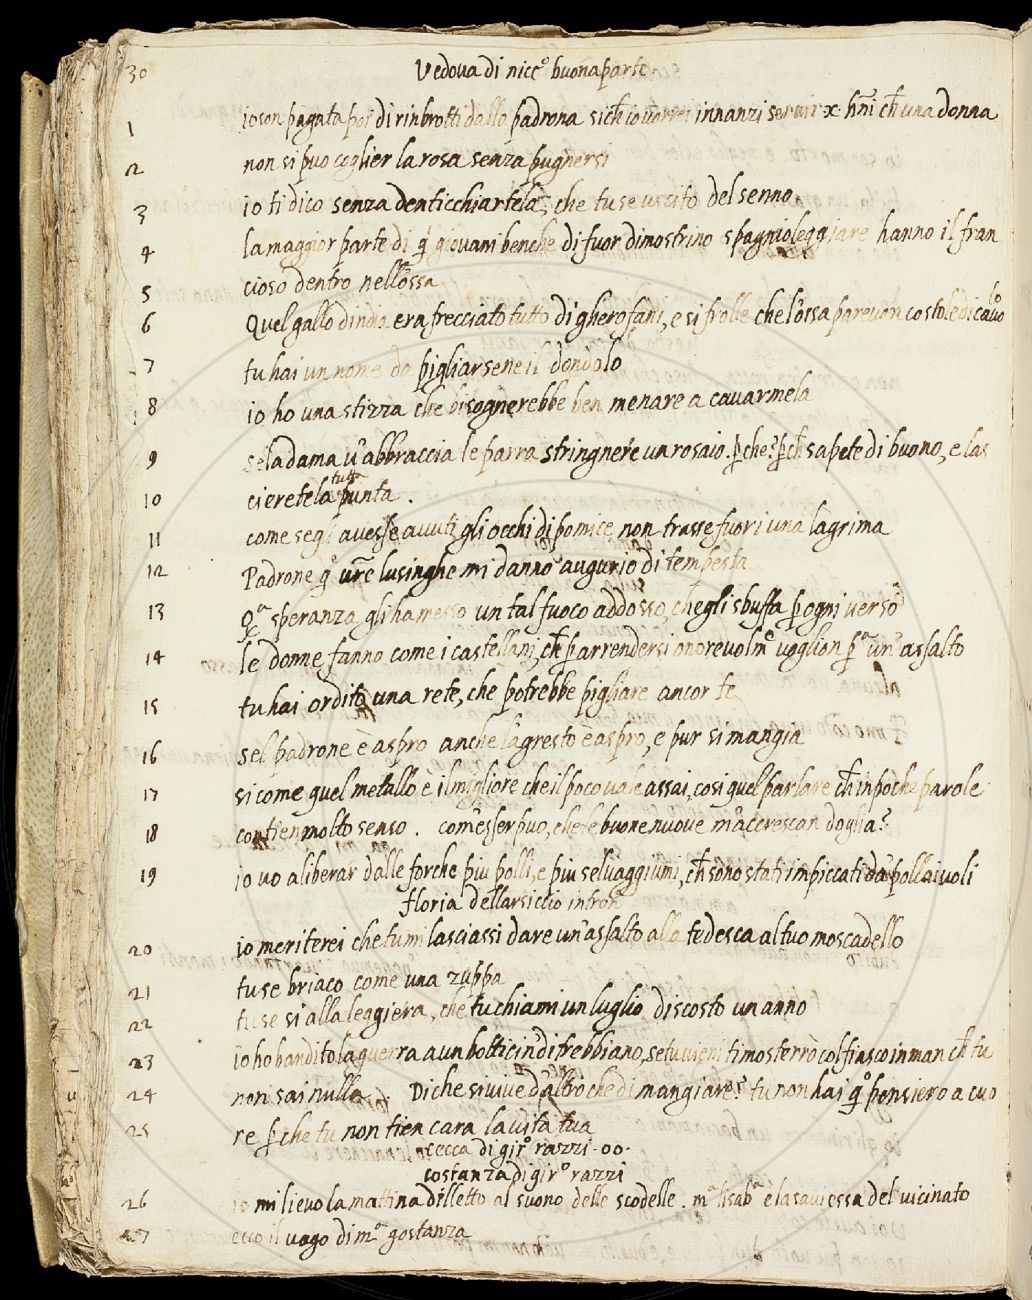 30
Vedova di nicc° buonaparte
1 io son pagata poi di rinbrotti dalla padrona sich̃ io vorrei innanzi servir x hñi ch̃ una donna
2 non si puo coglier la rosa senza pugnersi
3 io ti dico senza denticchiartela, che tu se uscito del senno
4 la maggior parte di q̃ giovani benche di fuor dimostrino spagnioleggiare hanno il fran
5 cioso dentro nell'ossa
6 Quel gallo dindia era frecciato tutto di gherofani, e si frolle che l'ossa parevon costole di cavolo
7 tu hai un nome da pigliarsene il dondolo
8 io ho una stizza che bisognerebbe ben menare a cavarmela
9 se la dama v'abbraccia le parra stringnere un rosaio. p̱che? p̱ch̃ sapete di buono, e las
10 cieretela tutta punta.
11 come segli avesse avuti gli occhi di pomice non trasse fuori una lagrima
12 Padrone q̃ vr̃e lusinghe mi danno augurio di tempesta
13 Qª speranza gli ha messo un tal fuoco addosso, chegli sbuffa p̱ ogni verso
14 le donne fanno come i castellani, ch̃ p̱ arrendersi onorevolmᵉ voglion pª un'assalto
15 tu hai ordito una rete, che potrebbe pigliare ancor te
16 sel padrone è aspro anche l'agresto è aspro, e pur si mangia
17 si come quel metallo è il migliore che il poco vale assai, cosi quel parlare ch̃ in poche parole
18 contien molto senso. com'esser puo, che le buone nuove m'accrescan doglia?
19 io vo a liberar dalle forche piu polli, e piu selvaggiumi, ch̃ sono stati impiccati da pollaivoli
floria dell'arsiccio intron
20 io meriterei che tu mi lasciassi dare un'assalto alla tedesca al tuo moscadello
21 tu se briaco come una zuppa
22 tu se si alla leggiera, che tu chiami un luglio discosto un anno
23 io ho bandito la guerra a un botticin di trebbiano, se tu vieni ti mosterrò col fiasco in man ch̃ tu
24 non sai nulla. Di che si vive d'altro che di mangiare? tu non hai q° pensiero a cuo
25 re p̱che tu non tien cara la vita tua
cecca di gir° razzi .oo.
costanza di gir° razzi
26 io mi lievo la mattina di letto al suono delle scodelle. mª lisabª è la saviessa del vicinato
27 ecco il vago di mª gostanza